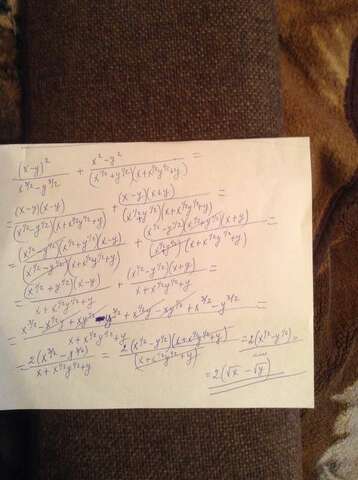 (x-y)²/(x^(3/2)-y^(3/2)) + (x²-y²)/((x^(1/2)+y^(1/2))(x+x^(1/2)y^(1/2)+y)) =
= (x-y)(x-y)/((x^(1/2)-y^(1/2))(x+x^(1/2)y^(1/2)+y)) + (x-y)(x+y)/((x^(1/2)+y^(1/2))(x+x^(1/2)y^(1/2)+y)) =
= (x^(1/2)-y^(1/2))(x^(1/2)+y^(1/2))(x-y)/((x^(1/2)-y^(1/2))(x+x^(1/2)y^(1/2)+y)) + (x^(1/2)-y^(1/2))(x^(1/2)+y^(1/2))(x+y)/((x^(1/2)+y^(1/2))(x+x^(1/2)y^(1/2)+y)) =
= (x^(1/2)+y^(1/2))(x-y)/(x+x^(1/2)y^(1/2)+y) + (x^(1/2)-y^(1/2))(x+y)/(x+x^(1/2)y^(1/2)+y) =
= 2(x^(3/2)-y^(3/2))/(x+x^(1/2)y^(1/2)+y) = 2(x^(1/2)-y^(1/2))(x+x^(1/2)y^(1/2)+y)/(x+x^(1/2)y^(1/2)+y) = 2(x^(1/2)-y^(1/2)) =
= 2(√x - √y)